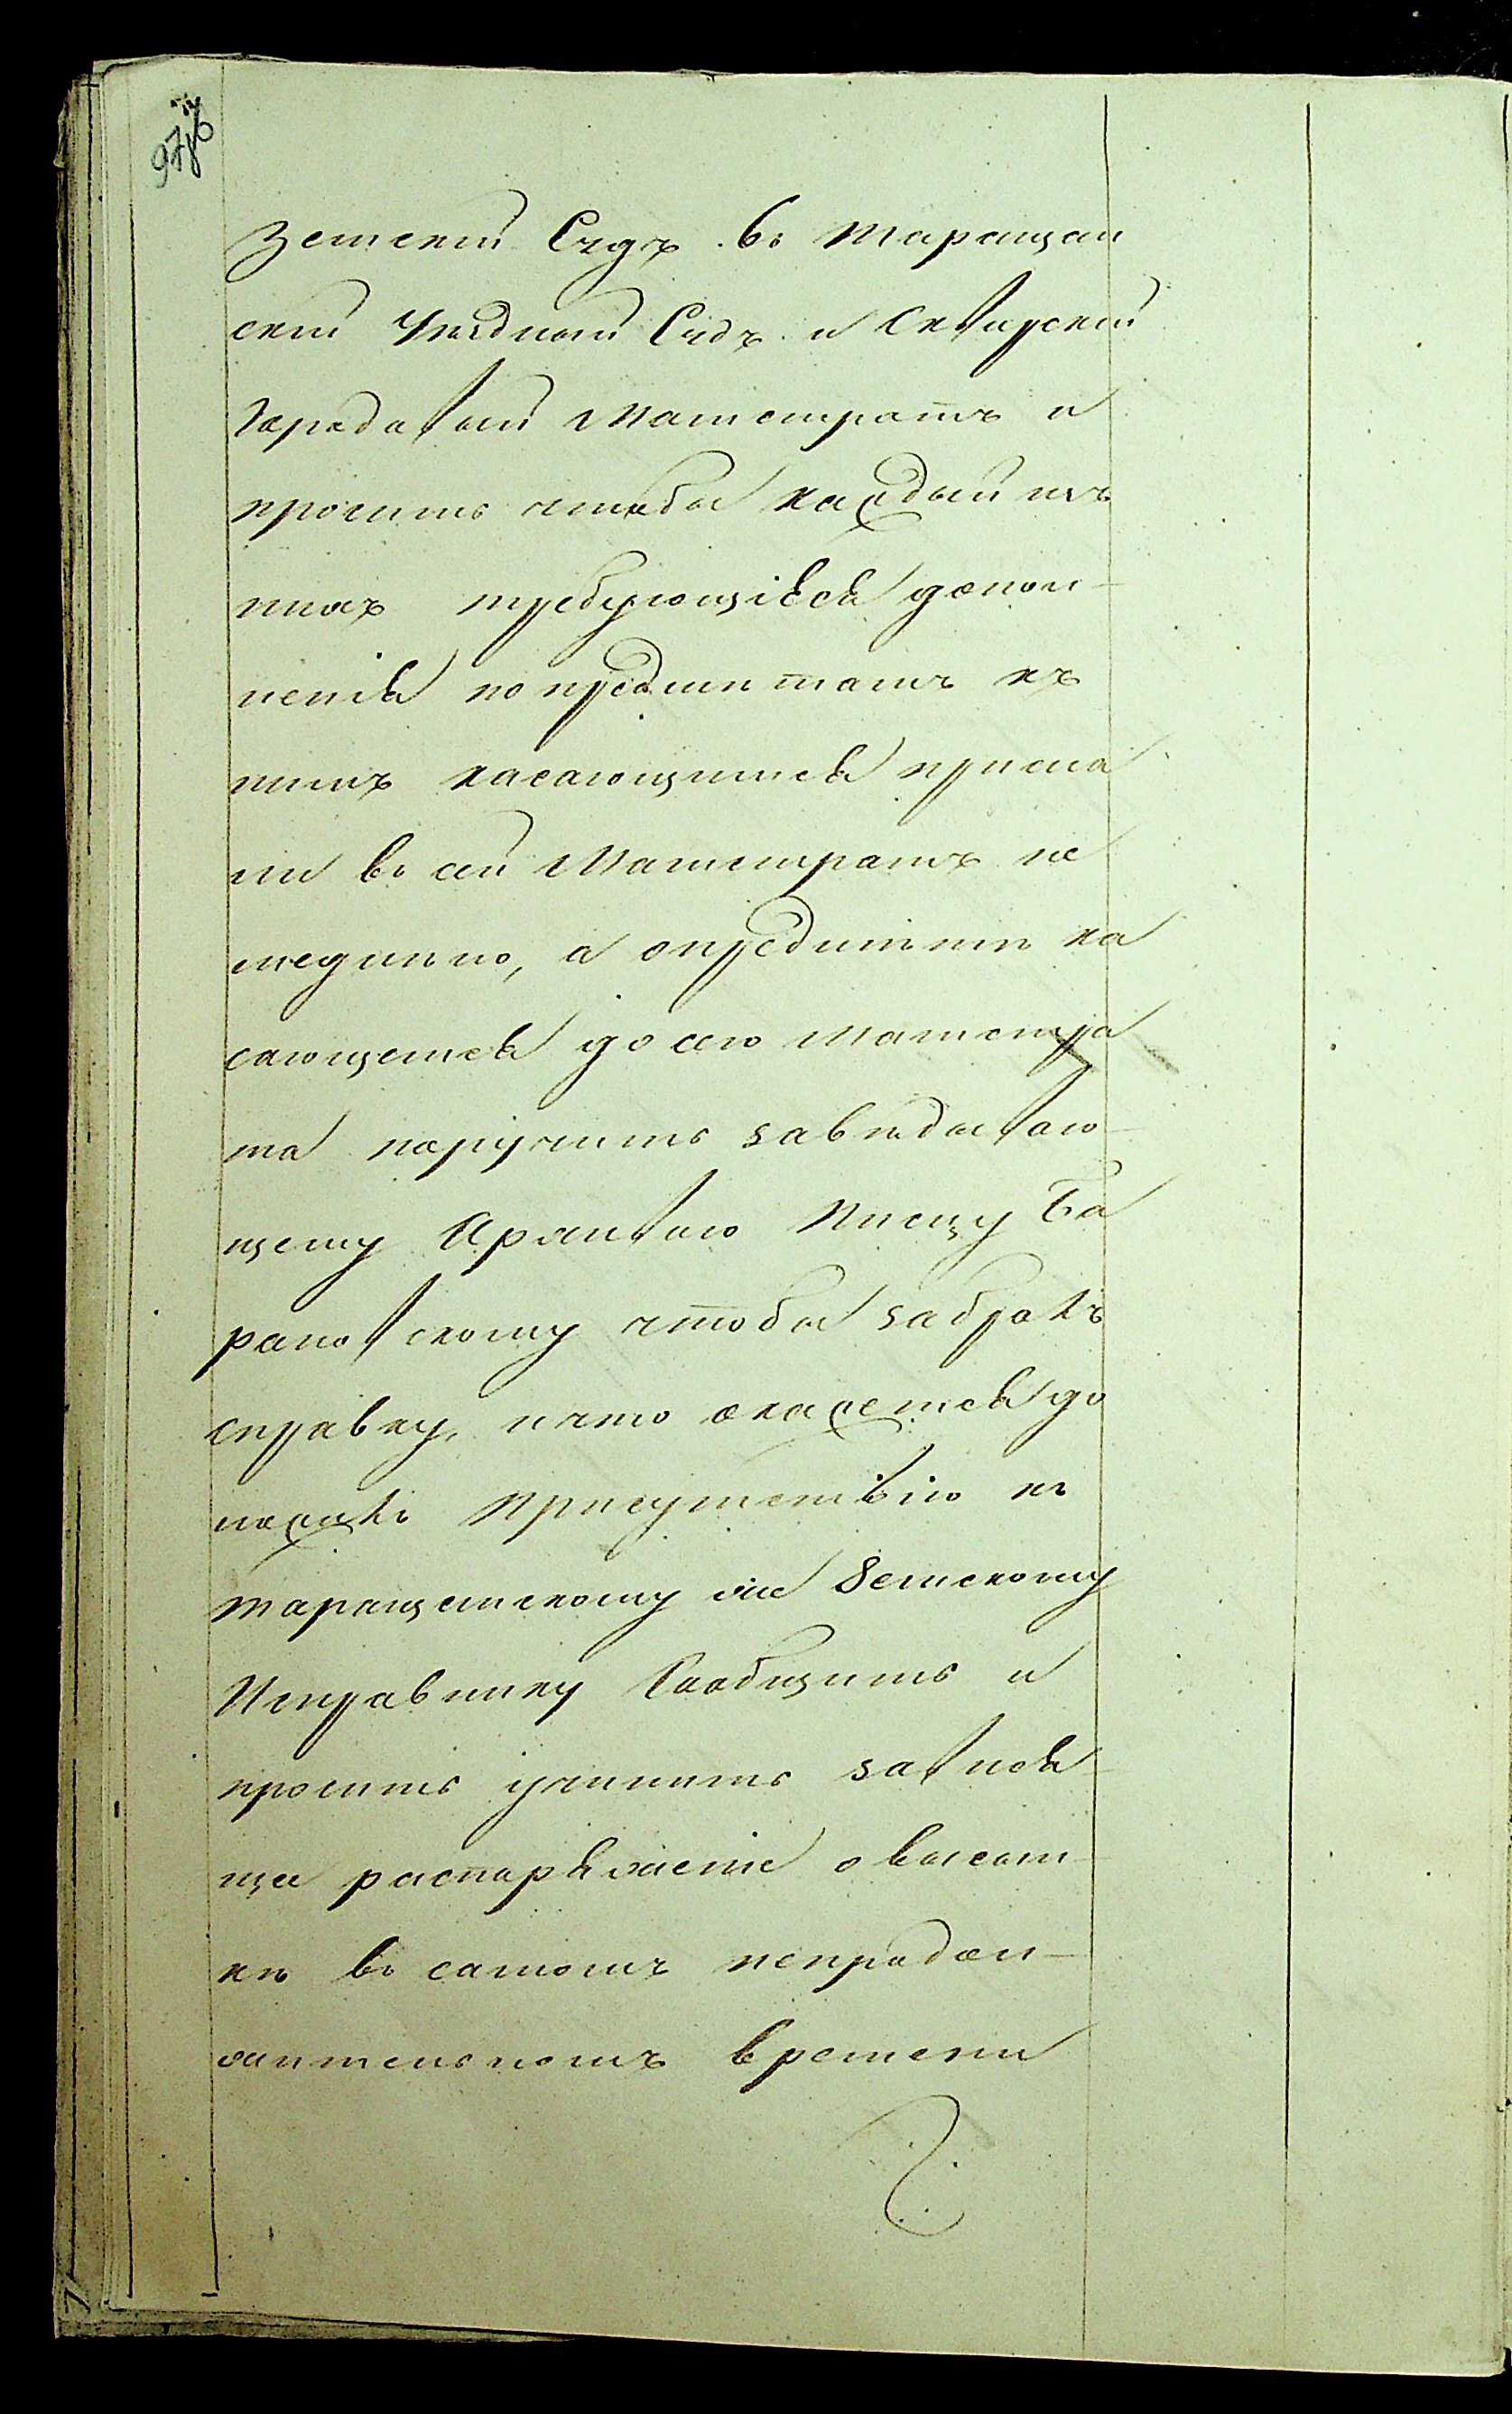 Земскій Судъ. въ Таращан
скій Уѣздный Судъ и Сквирскій
Городовый Магистратъ и
просить чтобы каждый изъ
нихъ требующіяся допол-
ненія по предметамъ къ
нимъ касающимся присла
ли въ сей Магистратъ не
медленно, а о предметѣ ка
сающемся до сего Магистра
та поручить завѣдываю-
щему Архивою Писцу Ба
рановскому чтобы забралъ
справку, и что окажется до
ложилъ Присутствію но
Таращанскому же Земскому
Исправнику Сообщить и
просить учинить зависѧ-
щее распоряженіе о высыл-
кѣ въ самомъ непродол-
жительномъ времени